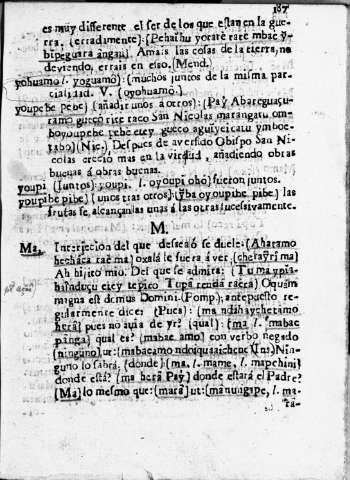 187
es muy differente el ser de los que estan en la gue-
rra, (erradamente): (Pehaihu yoraré raré mbae y-
bipeguara ângau). Amais las cosas de la tierra, no
deviendo, errais en esso. (Mend.
yohuamo l. yoguamô): (muchos juntos de la misma par-
cialidad. V. (oyohuamo.)
youpebe pebe) (añadir unos á otros): (Paỹ Abareguaçu-
ramo
San Nicolas marangatu
oyoupebe pebe etey
rabo) (Nic.) Despues de aversido Obispo San Ni-
colas creció mas en la virtud, añadiendo obras
buenas á obras buenas.
youpi (Juntos): youpi. l. oyoupi oho) fueron juntos.
youpibe pibe) (unos tras otros): (ỹba oyoupibe pibe) las
frutas se alcançan las unas á las otras sucessivamente.
M.
Ma, Interjecion del que desea ó se duele: (Aharamo
hecháca raé ma) oxalá le fuera á ver, (cherayrĩ ma)
Ah hijito mio. Del que se admira: (Tu ma ypia-
etey tepico Tupâ renda raéra) Oquam
magna est domus Domini. (Pomp.) antepuesto re-
gularmente dice: (Pues): (ma ndahaycheramo
herâ) pues no avia de yr? (qual): (ma l. mabae
pânga) qual es? (mabae amo) con verbo negado
(ninguno) ut: (mabaeamo ndoiquaaichene (Ins) Nin-
guno lo sabrá. (donde) (ma, l. mame, l. mapehini)
donde está? (ma herâ Paỹ) donde estará el Padre?
(Ma) lo mesmo que: (marâ) ut: (mânungape, l. ma-
râ-